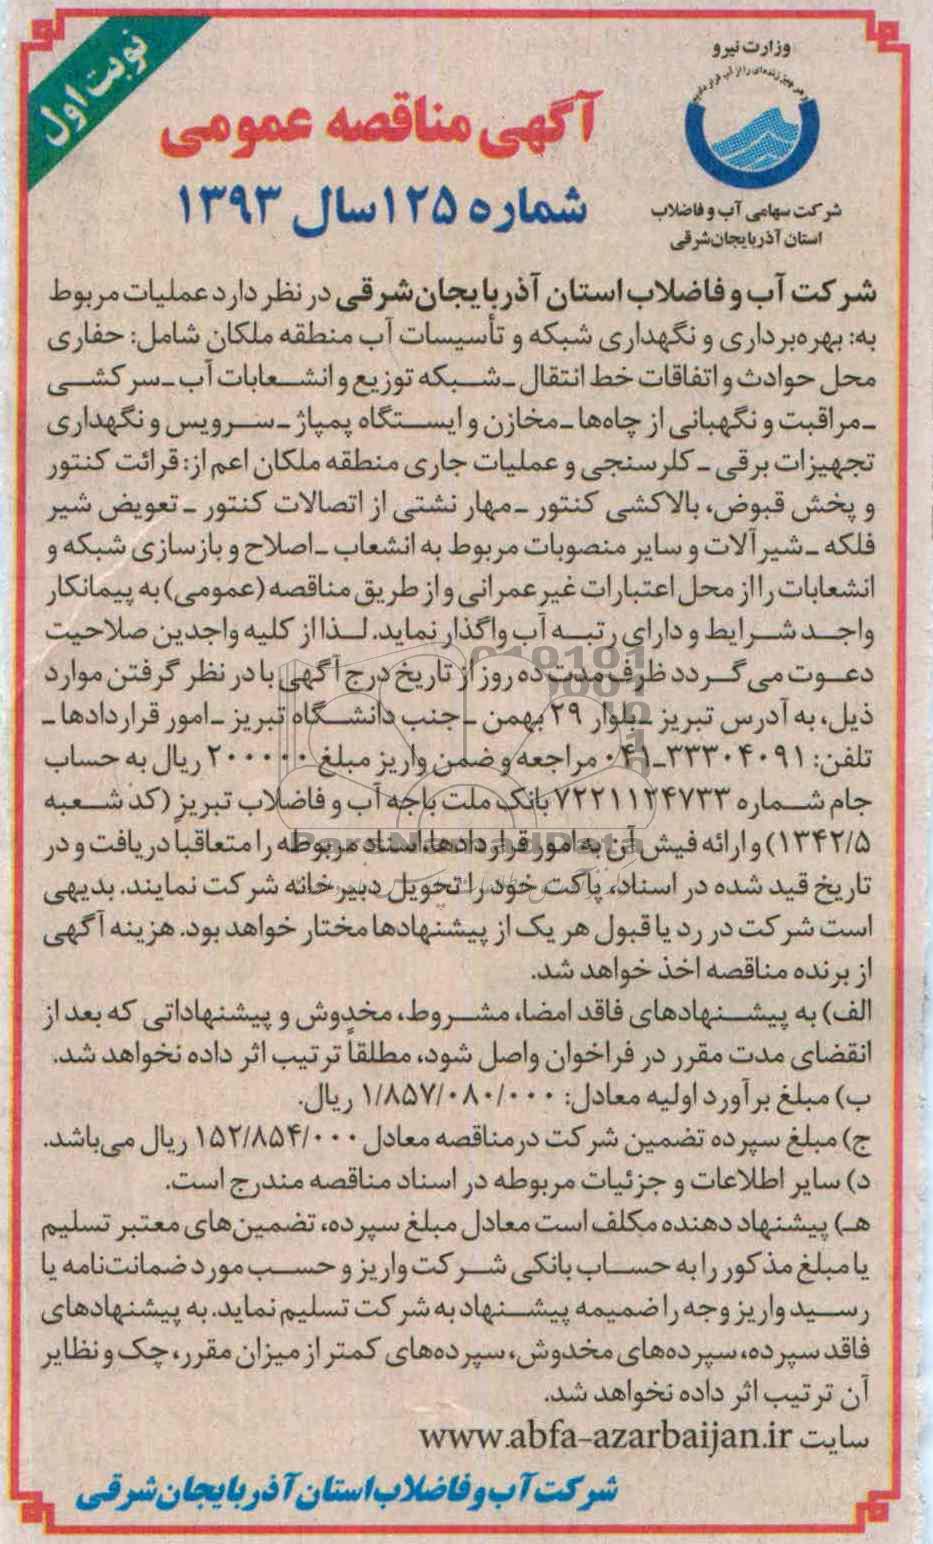 نوبت اول
وزارت نیرو
شرکت سهامی آب و فاضلاب
استان آذربایجان‌شرقی
آگهی مناقصه عمومی
شماره ۱۲۵ سال ۱۳۹۳
شرکت آب و فاضلاب استان آذربایجان‌شرقی در نظر دارد عملیات مربوط
به: بهره‌برداری و نگهداری شبکه و تأسیسات آب منطقه ملکان شامل: حفاری
محل حوادث و اتفاقات خط انتقال ـ شبکه توزیع و انشعابات آب ـ سرکشی
ـ مراقبت و نگهبانی از چاه‌ها ـ مخازن و ایستگاه پمپاژ ـ سرویس و نگهداری
تجهیزات برقی ـ کلرسنجی و عملیات جاری منطقه ملکان اعم از: قرائت کنتور
و پخش قبوض، بالاکشی کنتور ـ مهار نشتی از اتصالات کنتور ـ تعویض شیر
فلکه ـ شیرآلات و سایر منصوبات مربوط به انشعاب ـ اصلاح و بازسازی شبکه و
انشعابات را از محل اعتبارات غیرعمرانی و از طریق مناقصه (عمومی) به پیمانکار
واجد شرایط و دارای رتبه آب واگذار نماید. لذا از کلیه واجدین صلاحیت
دعوت می گردد ظرف مدت ده روز از تاریخ درج آگهی با در نظر گرفتن موارد
ذیل، به آدرس تبریز ـ بلوار ۲۹ بهمن ـ جنب دانشگاه تبریز ـ امور قراردادها ـ
تلفن: ۳۳۳۰۴۰۹۱ـ۰۴۱ مراجعه و ضمن واریز مبلغ ۲۰۰۰۰۰ ریال به حساب
جام شماره ۷۲۲۱۱۲۴۷۳۳ بانک ملت باجه آب و فاضلاب تبریز (کد شعبه
۱۳۴۲/۵) و ارائه فیش آن به امور قراردادها، اسناد مربوطه را متعاقبا دریافت و در
تاریخ قید شده در اسناد، پاکت خود را تحویل دبیرخانه شرکت نمایند. بدیهی
است شرکت در رد یا قبول هر یک از پیشنهادها مختار خواهد بود. هزینه آگهی
از برنده مناقصه اخذ خواهد شد.
الف) به پیشنهادهای فاقد امضا، مشروط، مخدوش و پیشنهاداتی که بعد از
انقضای مدت مقرر در فراخوان واصل شود، مطلقاً ترتیب اثر داده نخواهد شد.
ب) مبلغ برآورد اولیه معادل: ۱/۸۵۷/۰۸۰/۰۰۰ ریال.
ج) مبلغ سپرده تضمین شرکت در مناقصه معادل ۱۵۲/۸۵۴/۰۰۰ ریال می‌باشد.
د) سایر اطلاعات و جزئیات مربوطه در اسناد مناقصه مندرج است.
هـ) پیشنهاد دهنده مکلف است معادل مبلغ سپرده، تضمین‌های معتبر تسلیم
یا مبلغ مذکور را به حساب بانکی شرکت واریز و حسب مورد ضمانت‌نامه یا
رسید واریز وجه را ضمیمه پیشنهاد به شرکت تسلیم نماید. به پیشنهادهای
فاقد سپرده، سپرده‌های مخدوش، سپرده‌های کمتر از میزان مقرر، چک و نظایر
آن ترتیب اثر داده نخواهد شد.
سایت www.abfa-azarbaijan.ir
شرکت آب و فاضلاب استان آذربایجان شرقی